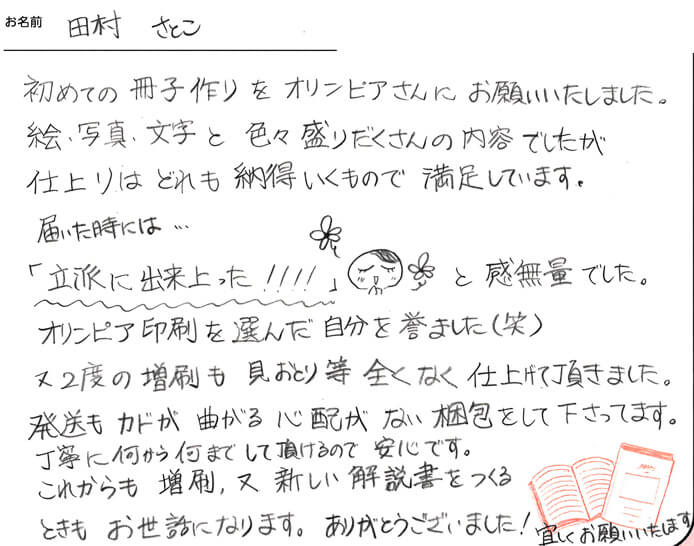 お名前 田村 さとこ
初めての冊子作りをオリンピアさんにお願いいたしました。
絵、写真、文字と色々盛りだくさんの内容でしたが
仕上りはどれも納得いくもので満足しています。
届いた時には…
「立派に出来上った!!!!」と感無量でした。
オリンピア印刷を選んだ自分を誉ました(笑)
又2度の増刷も見おとり等全くなく仕上げて頂きました。
発送もカドが曲がる心配がない梱包をして下さってます。
丁寧に何から何までして頂けるので安心です。
これからも増刷,又新しい解説書をつくる
ときもお世話になります。ありがとうございました!宜しくお願いいたします